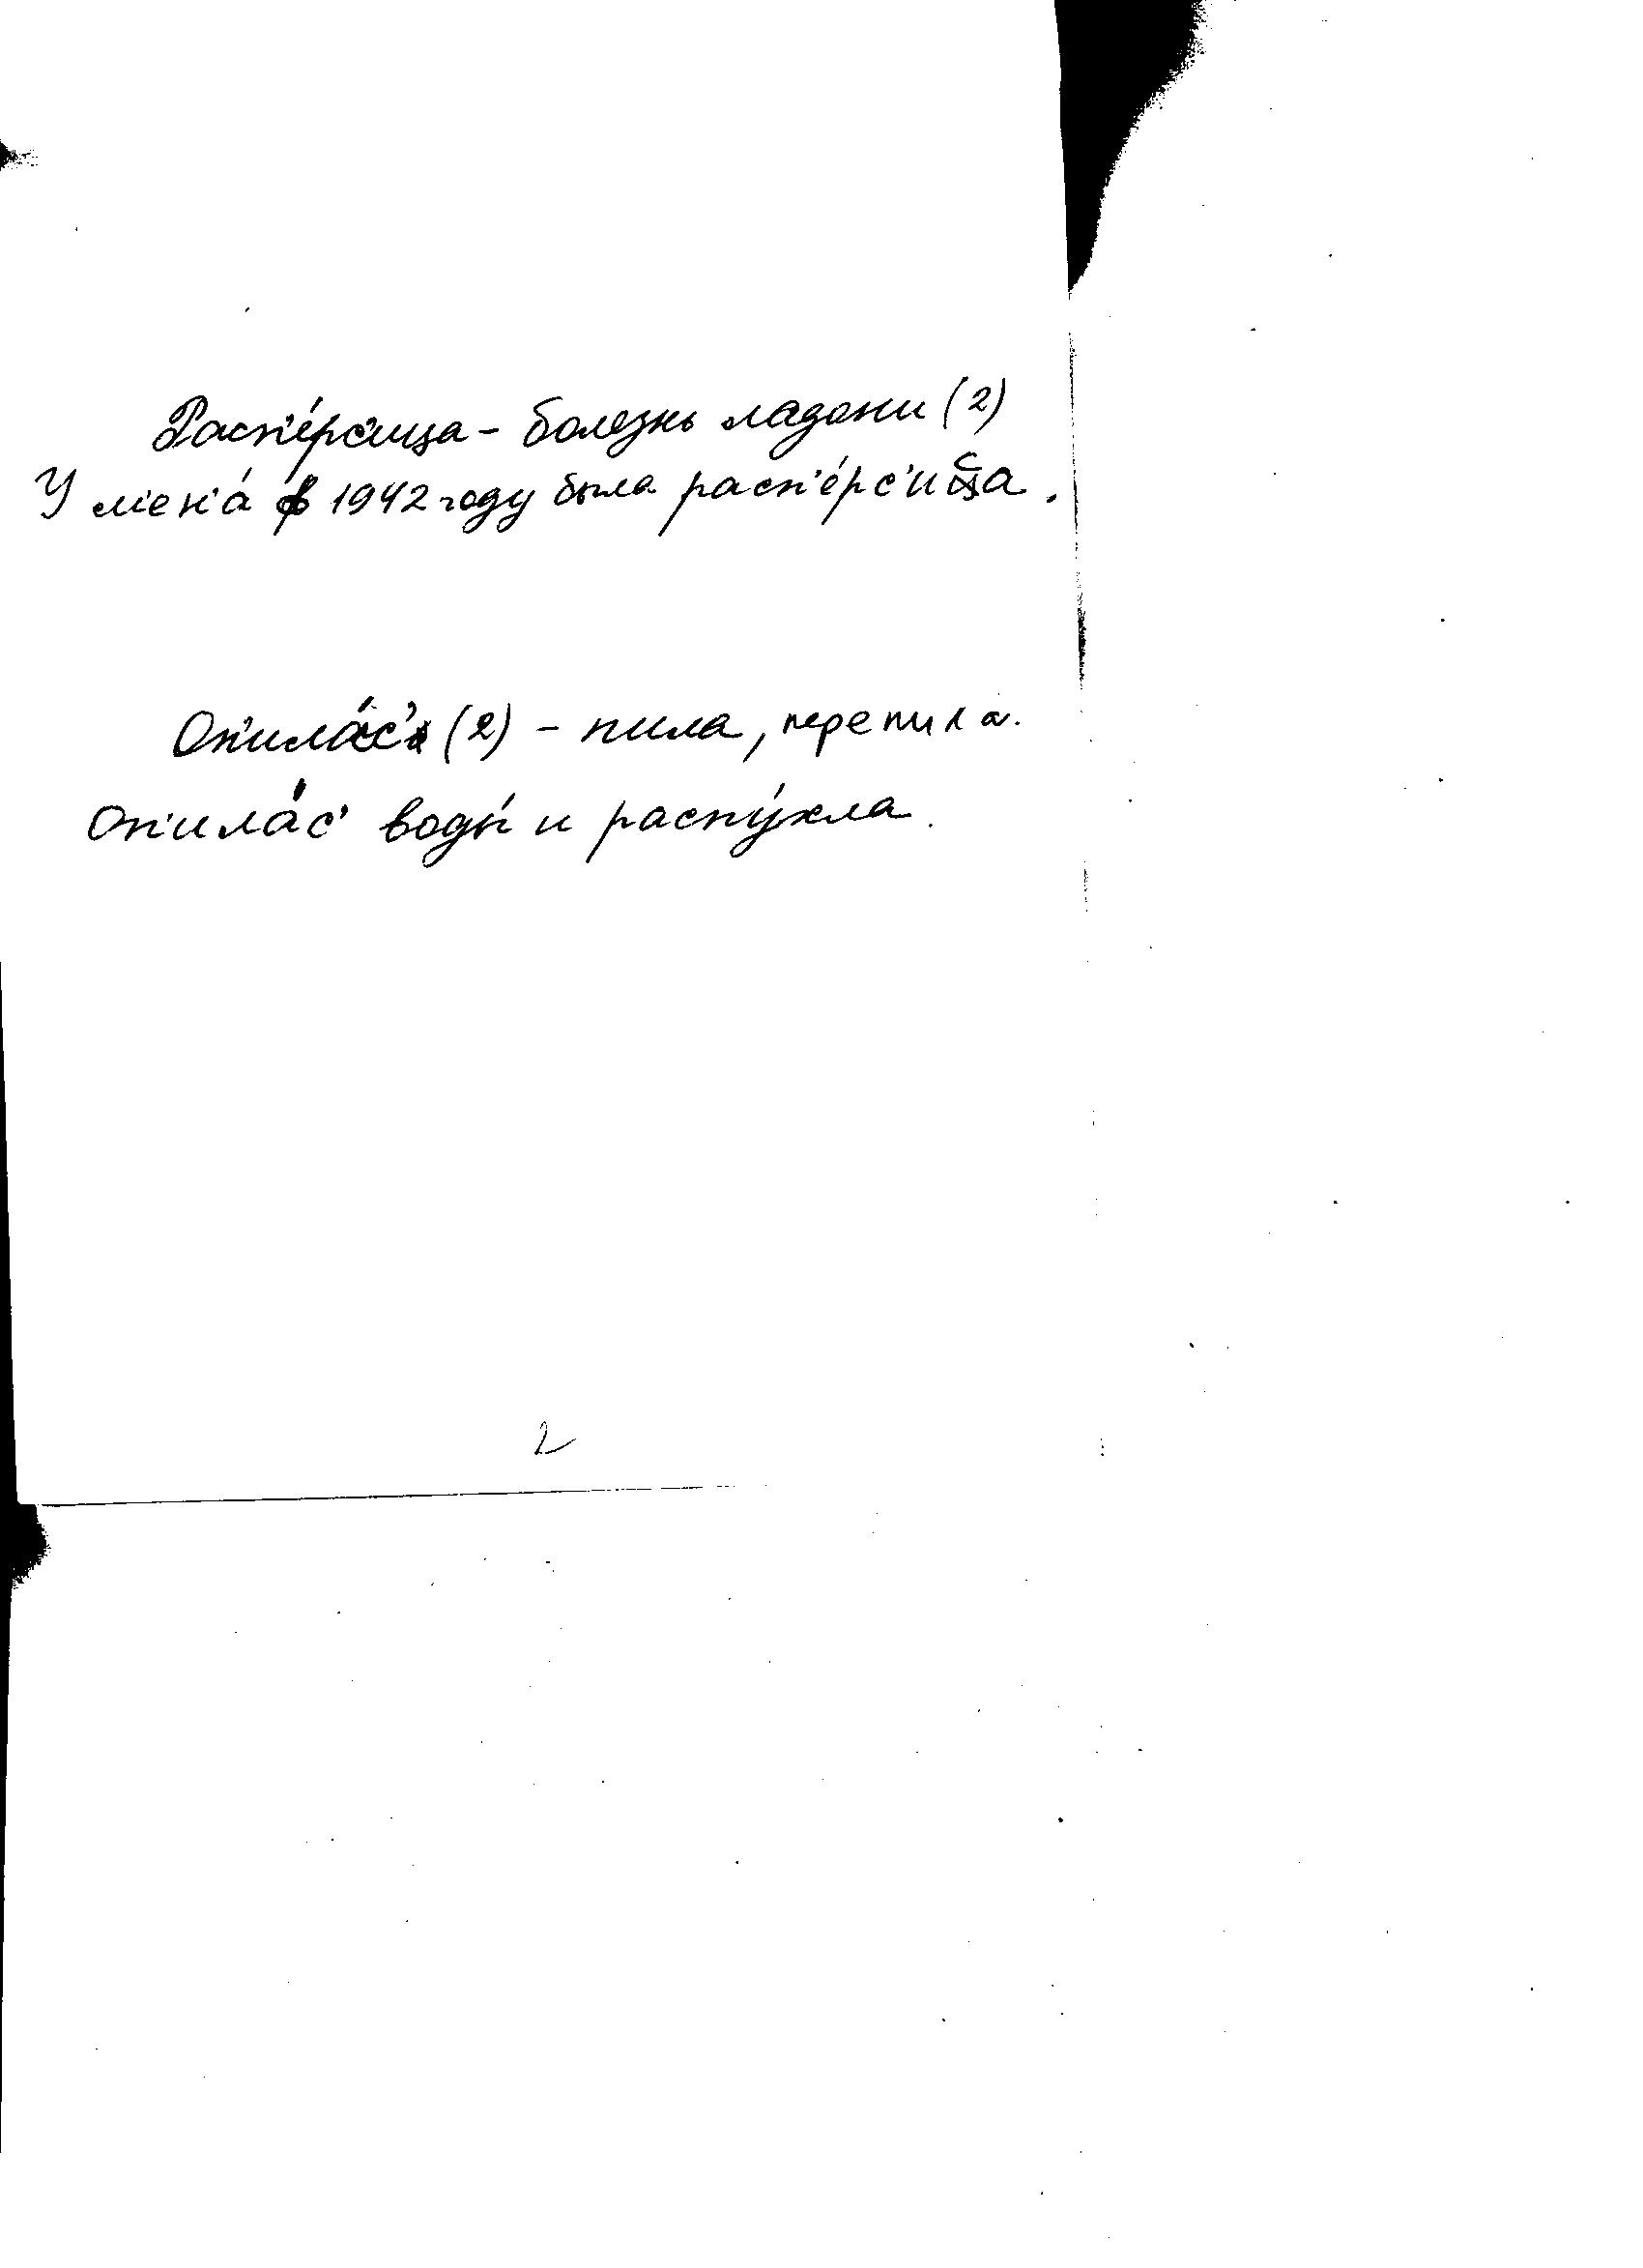 Расп'е́рс'ица - болезнь ладони (2)
У м'ен'а́ в 1942 году была расп'е́рс'иса.
Оп'ила́с' (2) - пила, перепила.
Оп'ила́с' воды́ и распу́хла.
2